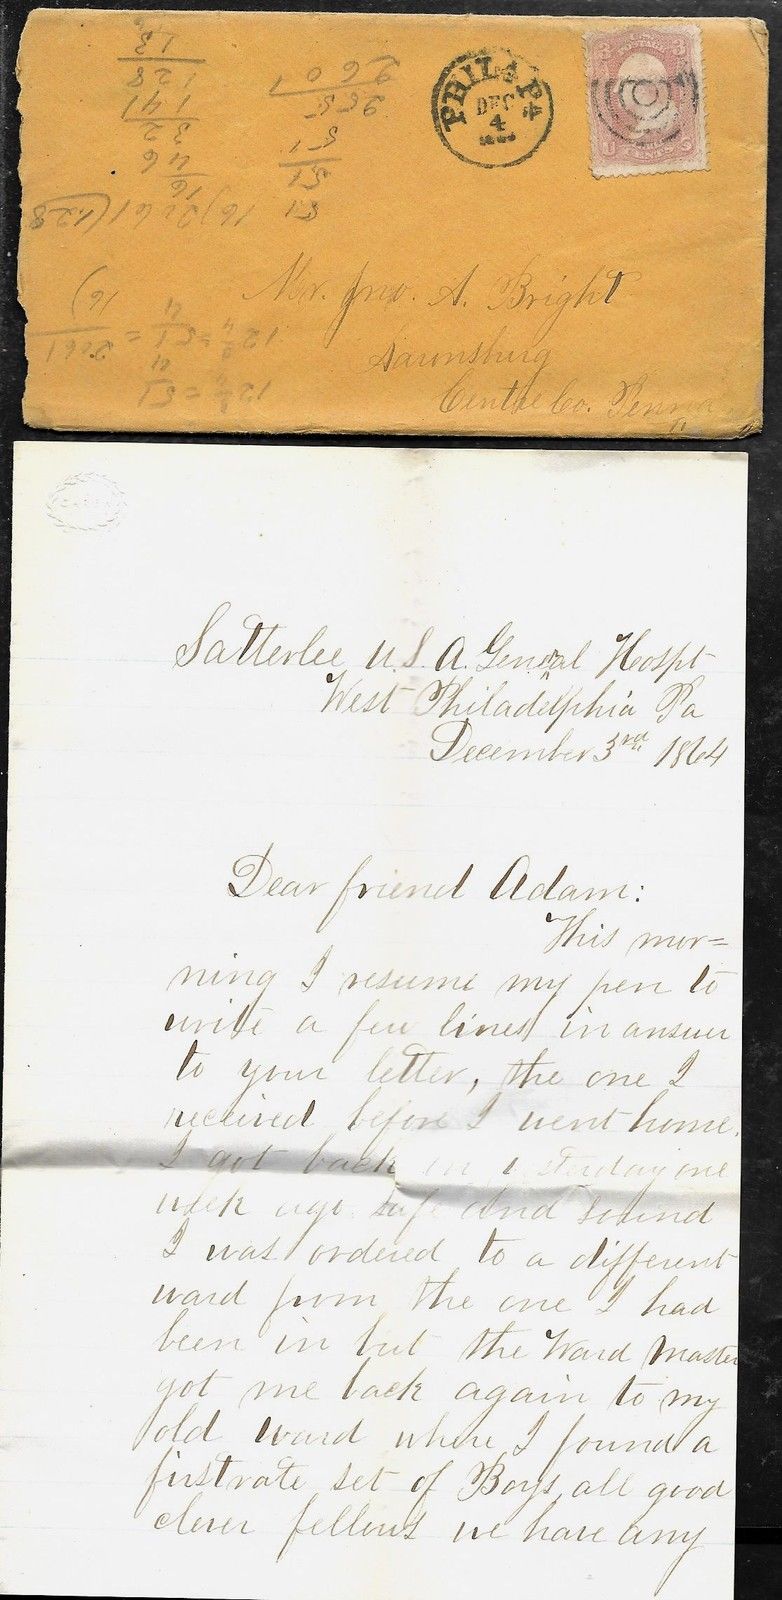 PHILA PA
DEC
4
3 U.S. POSTAGE 3
U CENTS S
Mr. Jno. A. Bright
Centre Co. Penna
Satterlee U.S.A. General Hospt
West Philadelphia Pa
December 3rd 1864
Dear friend Adam:
This mor=
ning I resume my pen to
write a few lines in answer
to your letter, the one I
received before I went home.
I got back on yesterday one
week ago safe and sound
I was ordered to a different
ward from the one I had
been in but the Ward Master
got me back again to my
old ward where I found a
firstrate set of Boys, all good
clever fellows we have any